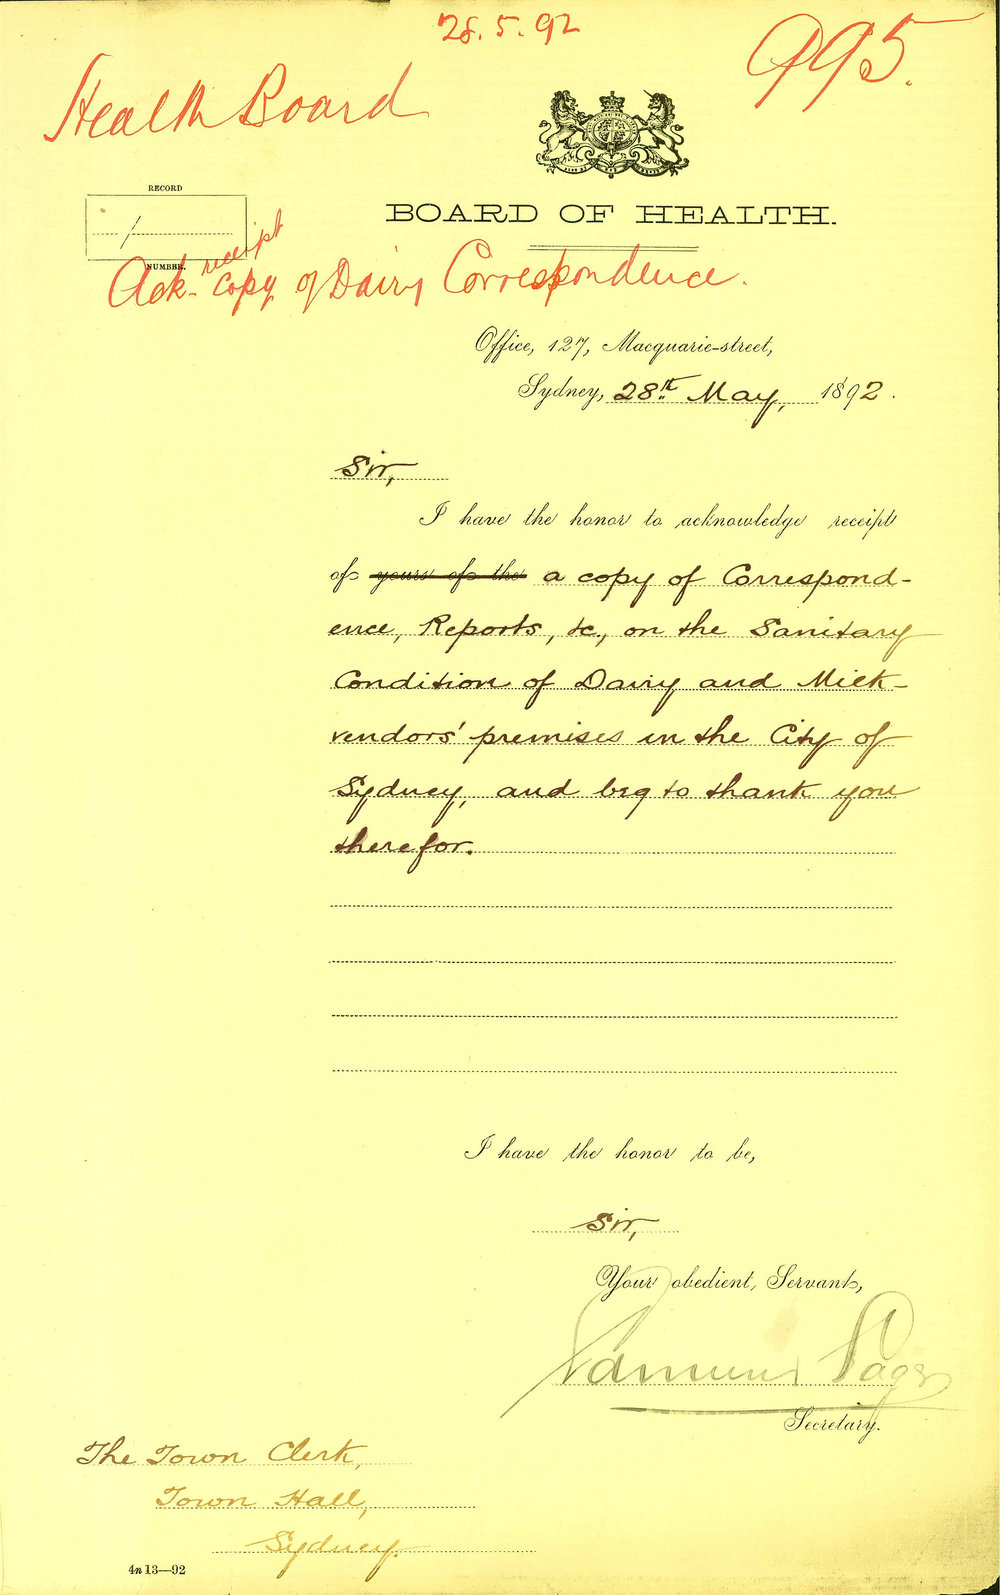 28.5.92
995.
Health Board
RECORD
NUMBER.
BOARD OF HEALTH.
Ack. receipt copy of Dairy Correspondence.
Office, 127, Macquarie-street,
Sydney, 28th May, 1892.
Sir,
I have the honor to acknowledge receipt
of yours of the a copy of Correspond-
ence, Reports, &c, on the Sanitary
Condition of Dairy and Milk-
vendors' premises in the City of
Sydney, and beg to thank you
therefor.
I have the honor to be,
Sir,
Your obedient Servant,
Edmund Sager
Secretary.
The Town Clerk,
Town Hall,
Sydney.
4n 13—92